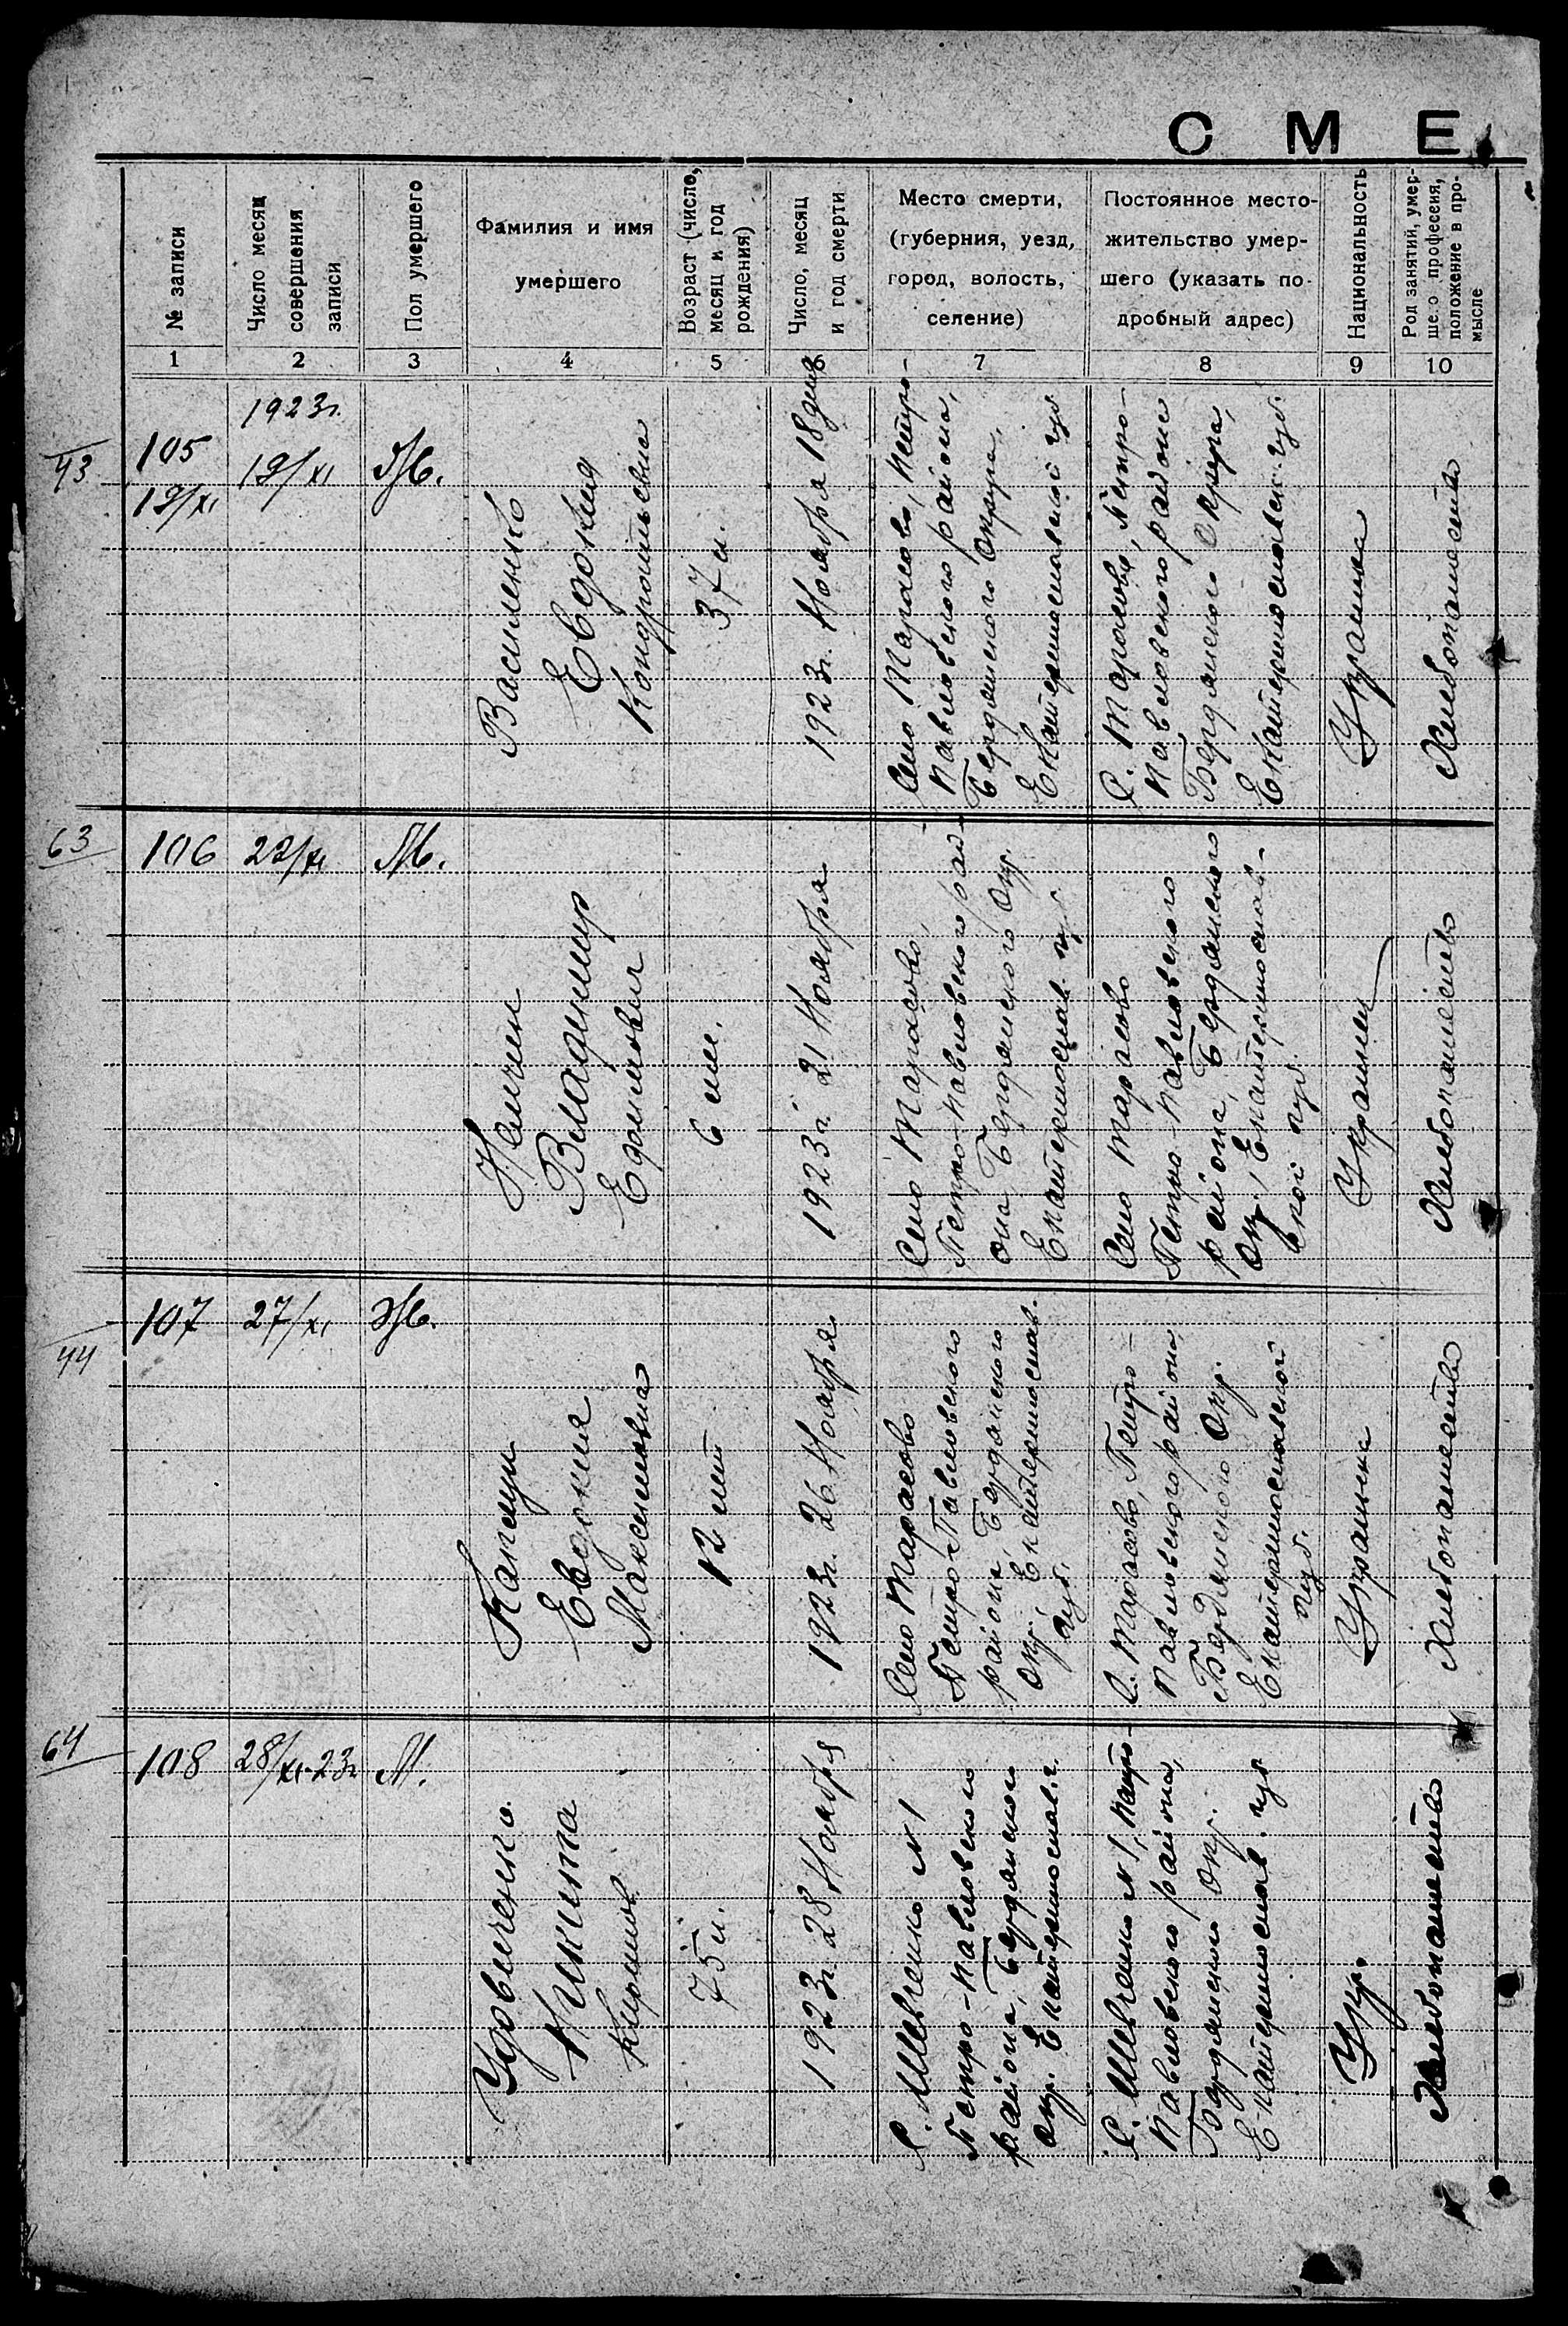 С М Е
№ записи
Число месяц
совершения
записи
Пол умершего
Фамилия и имя
умершего
Возраст (число,
месяц и год
рождения)
Число, месяц
и год смерти
Место смерти,
(губерния, уезд,
город, волость,
селение)
Постоянное место-
жительство умер-
шего (указать по-
дробный адрес)
Национальность
Род занятий, умер-
ше.о профессия,
положение в про-
мысле
1
2
3
4
5
6
7
8
9
10
43
105
19/XI
1923г.
19/XI
Ж.
Василенко
Евдокия
Кондратьевна
37 л.
1923г. Ноября 18 дня
Село Тарасово, Петро-
Павловского района,
Бердянского Округа,
Екатеринославской губ
С. Тарасово, Петро-
Павловского района
Бердянского Округа,
Екатеринославск. губ.
Украинка
Хлебопашество
63
106
22/XI
М.
Владимир
6 м.
1923г. 21 Ноября
Село Тарасово,
Петро-Павловского рай-
она, Бердянского Окр.
Екатеринослав. губ.
Село Тарасово
Петро-Павловского
района, Бердянского
Окр., Екатеринослав-
ской губ.
Украинец
Хлебопашество
44
107
27/XI
Ж.
Евдокия
Максимовна
12 лет
1923г. 26 Ноября
Село Тарасово
Петро-Павловского
района, Бердянского
Окр., Екатеринослав.
губ.
С. Тарасово, Петро-
Павловского района,
Бердянского Окр.
Екатеринославской
губ.
Украинка
Хлебопашество
64
108
28/XI-23г
М.
Удовиченко
Никита
75 л.
1923г. 28 Ноября
С. Шевченко N 1
Петро-Павловского
района, Бердянского
Окр. Екатеринослав. г.
С. Шевченко N 1, Петро-
Павловского района,
Бердянского Окр.
Екатеринослав. губ
Укр.
Хлебопашество